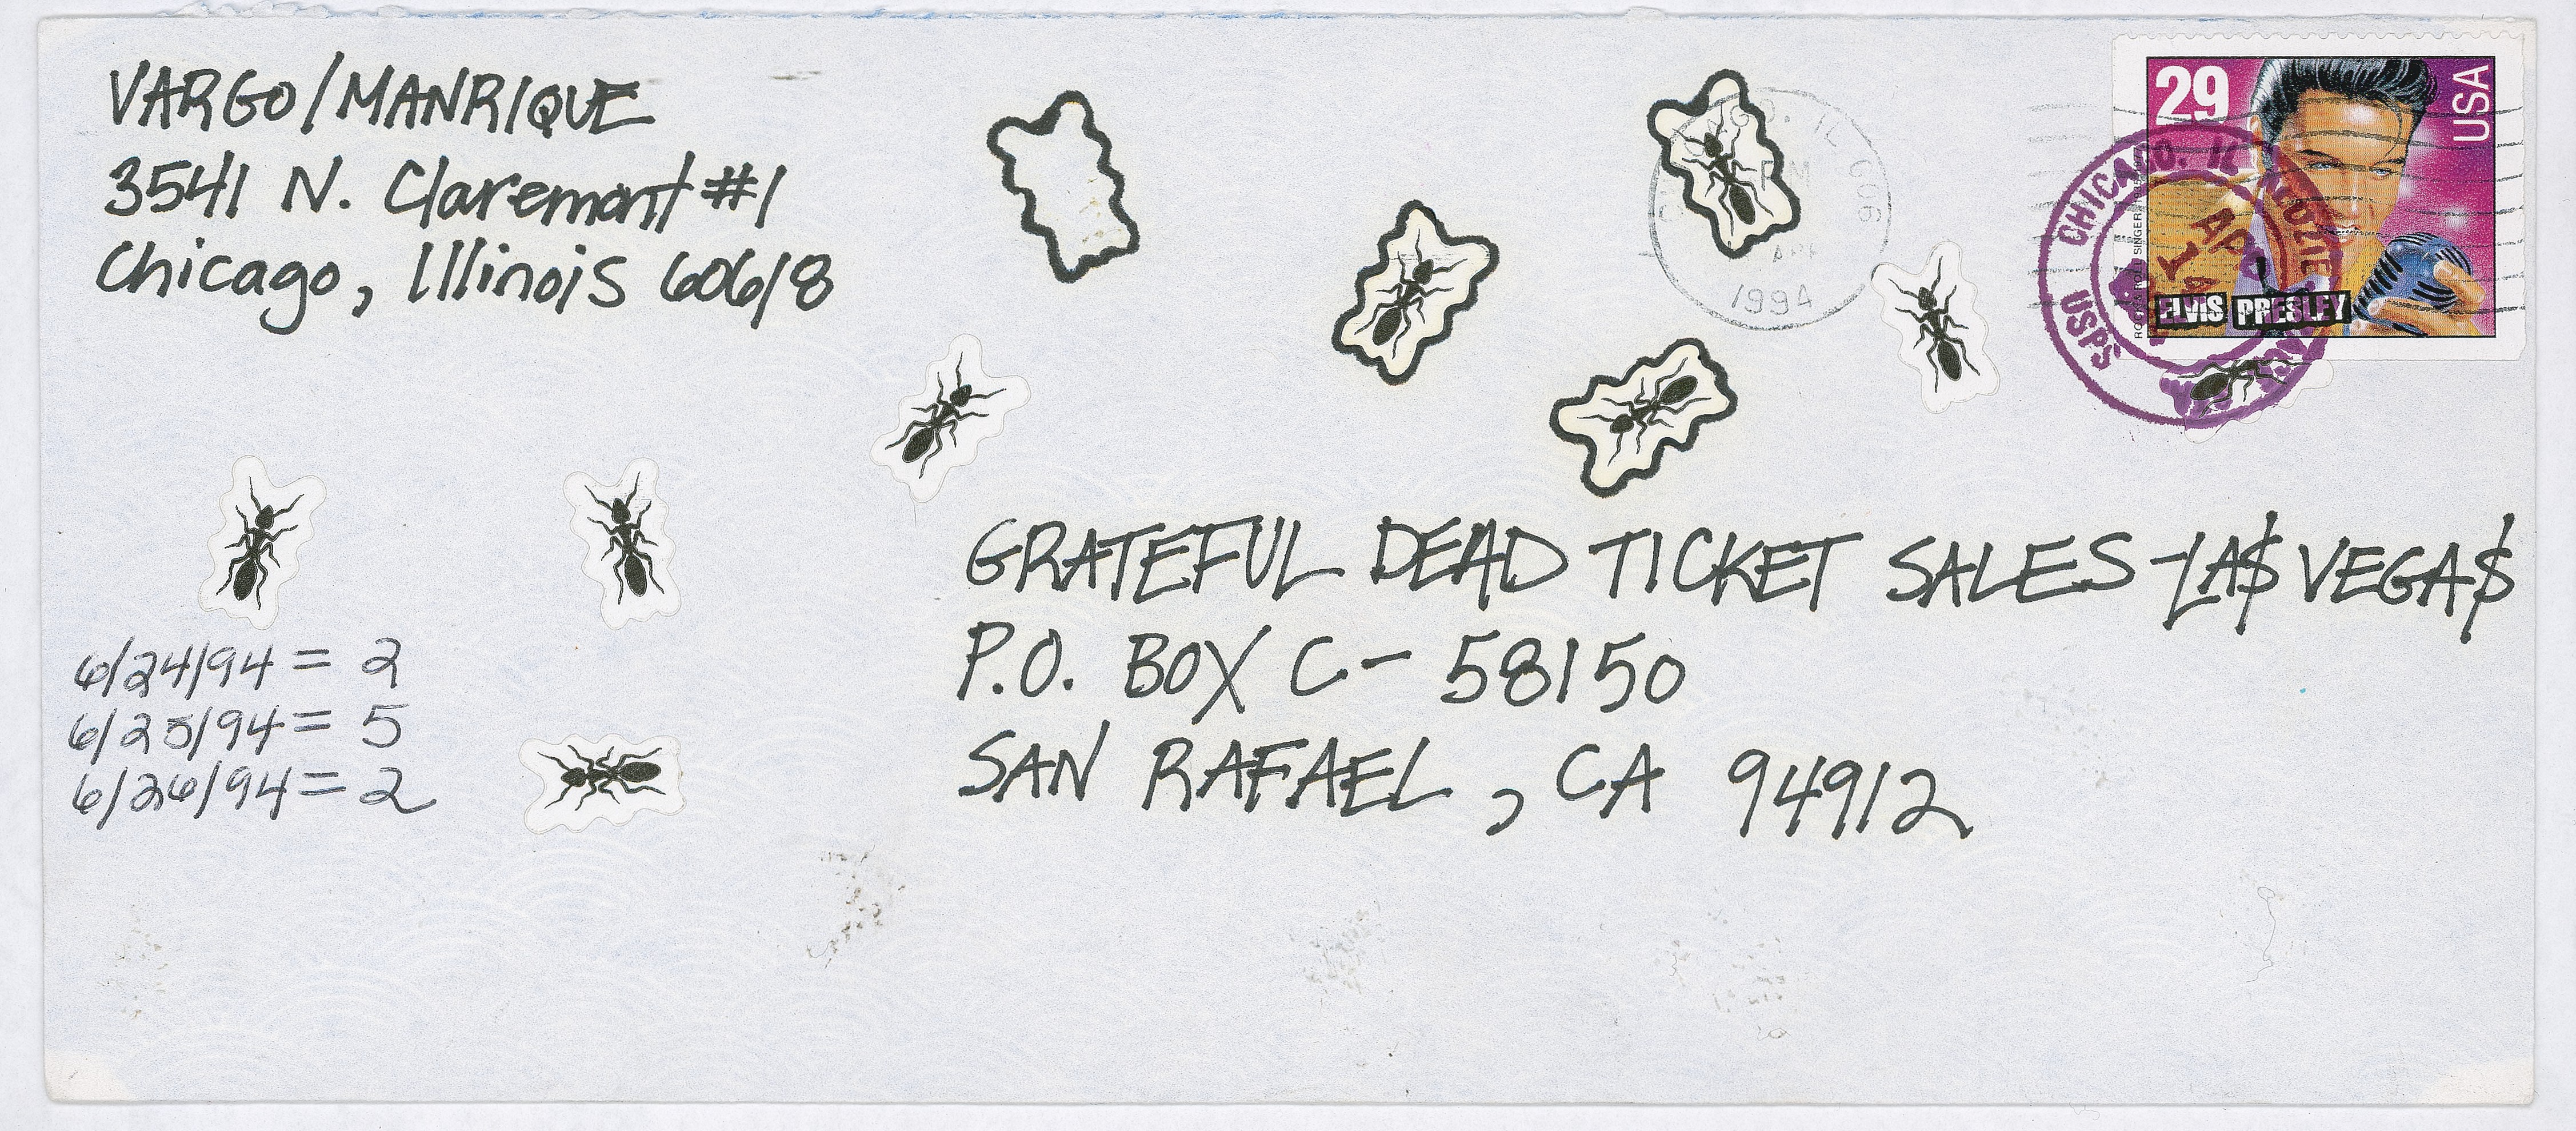 VARGO/MANRIQUE
3541 N. Claremont #1
Chicago, Illinois 60618
29
USA
ELVIS PRESLEY
CHICAGO, IL
USPS
APR
14
1994
GRATEFUL DEAD TICKET SALES-LA$ VEGA$
P.O. BOX C-58150
SAN RAFAEL, CA 94912
6/24/94 = 2
6/25/94 = 5
6/26/94 = 2